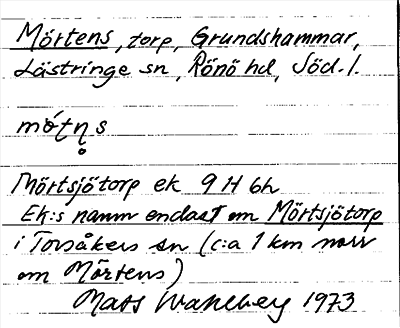 Mörtens, torp, Grundshammar,
Lästringe sn, Rönö hd, Söd. l.
mó̤ʈɳ̥s
Mörtsjötorp ek 9 H 6h
Ek:s namn endast om Mörtsjötorp
i Torsåkers sn (c:a 1 km norr
om Mörtens)
Mats Wahlberg 1973